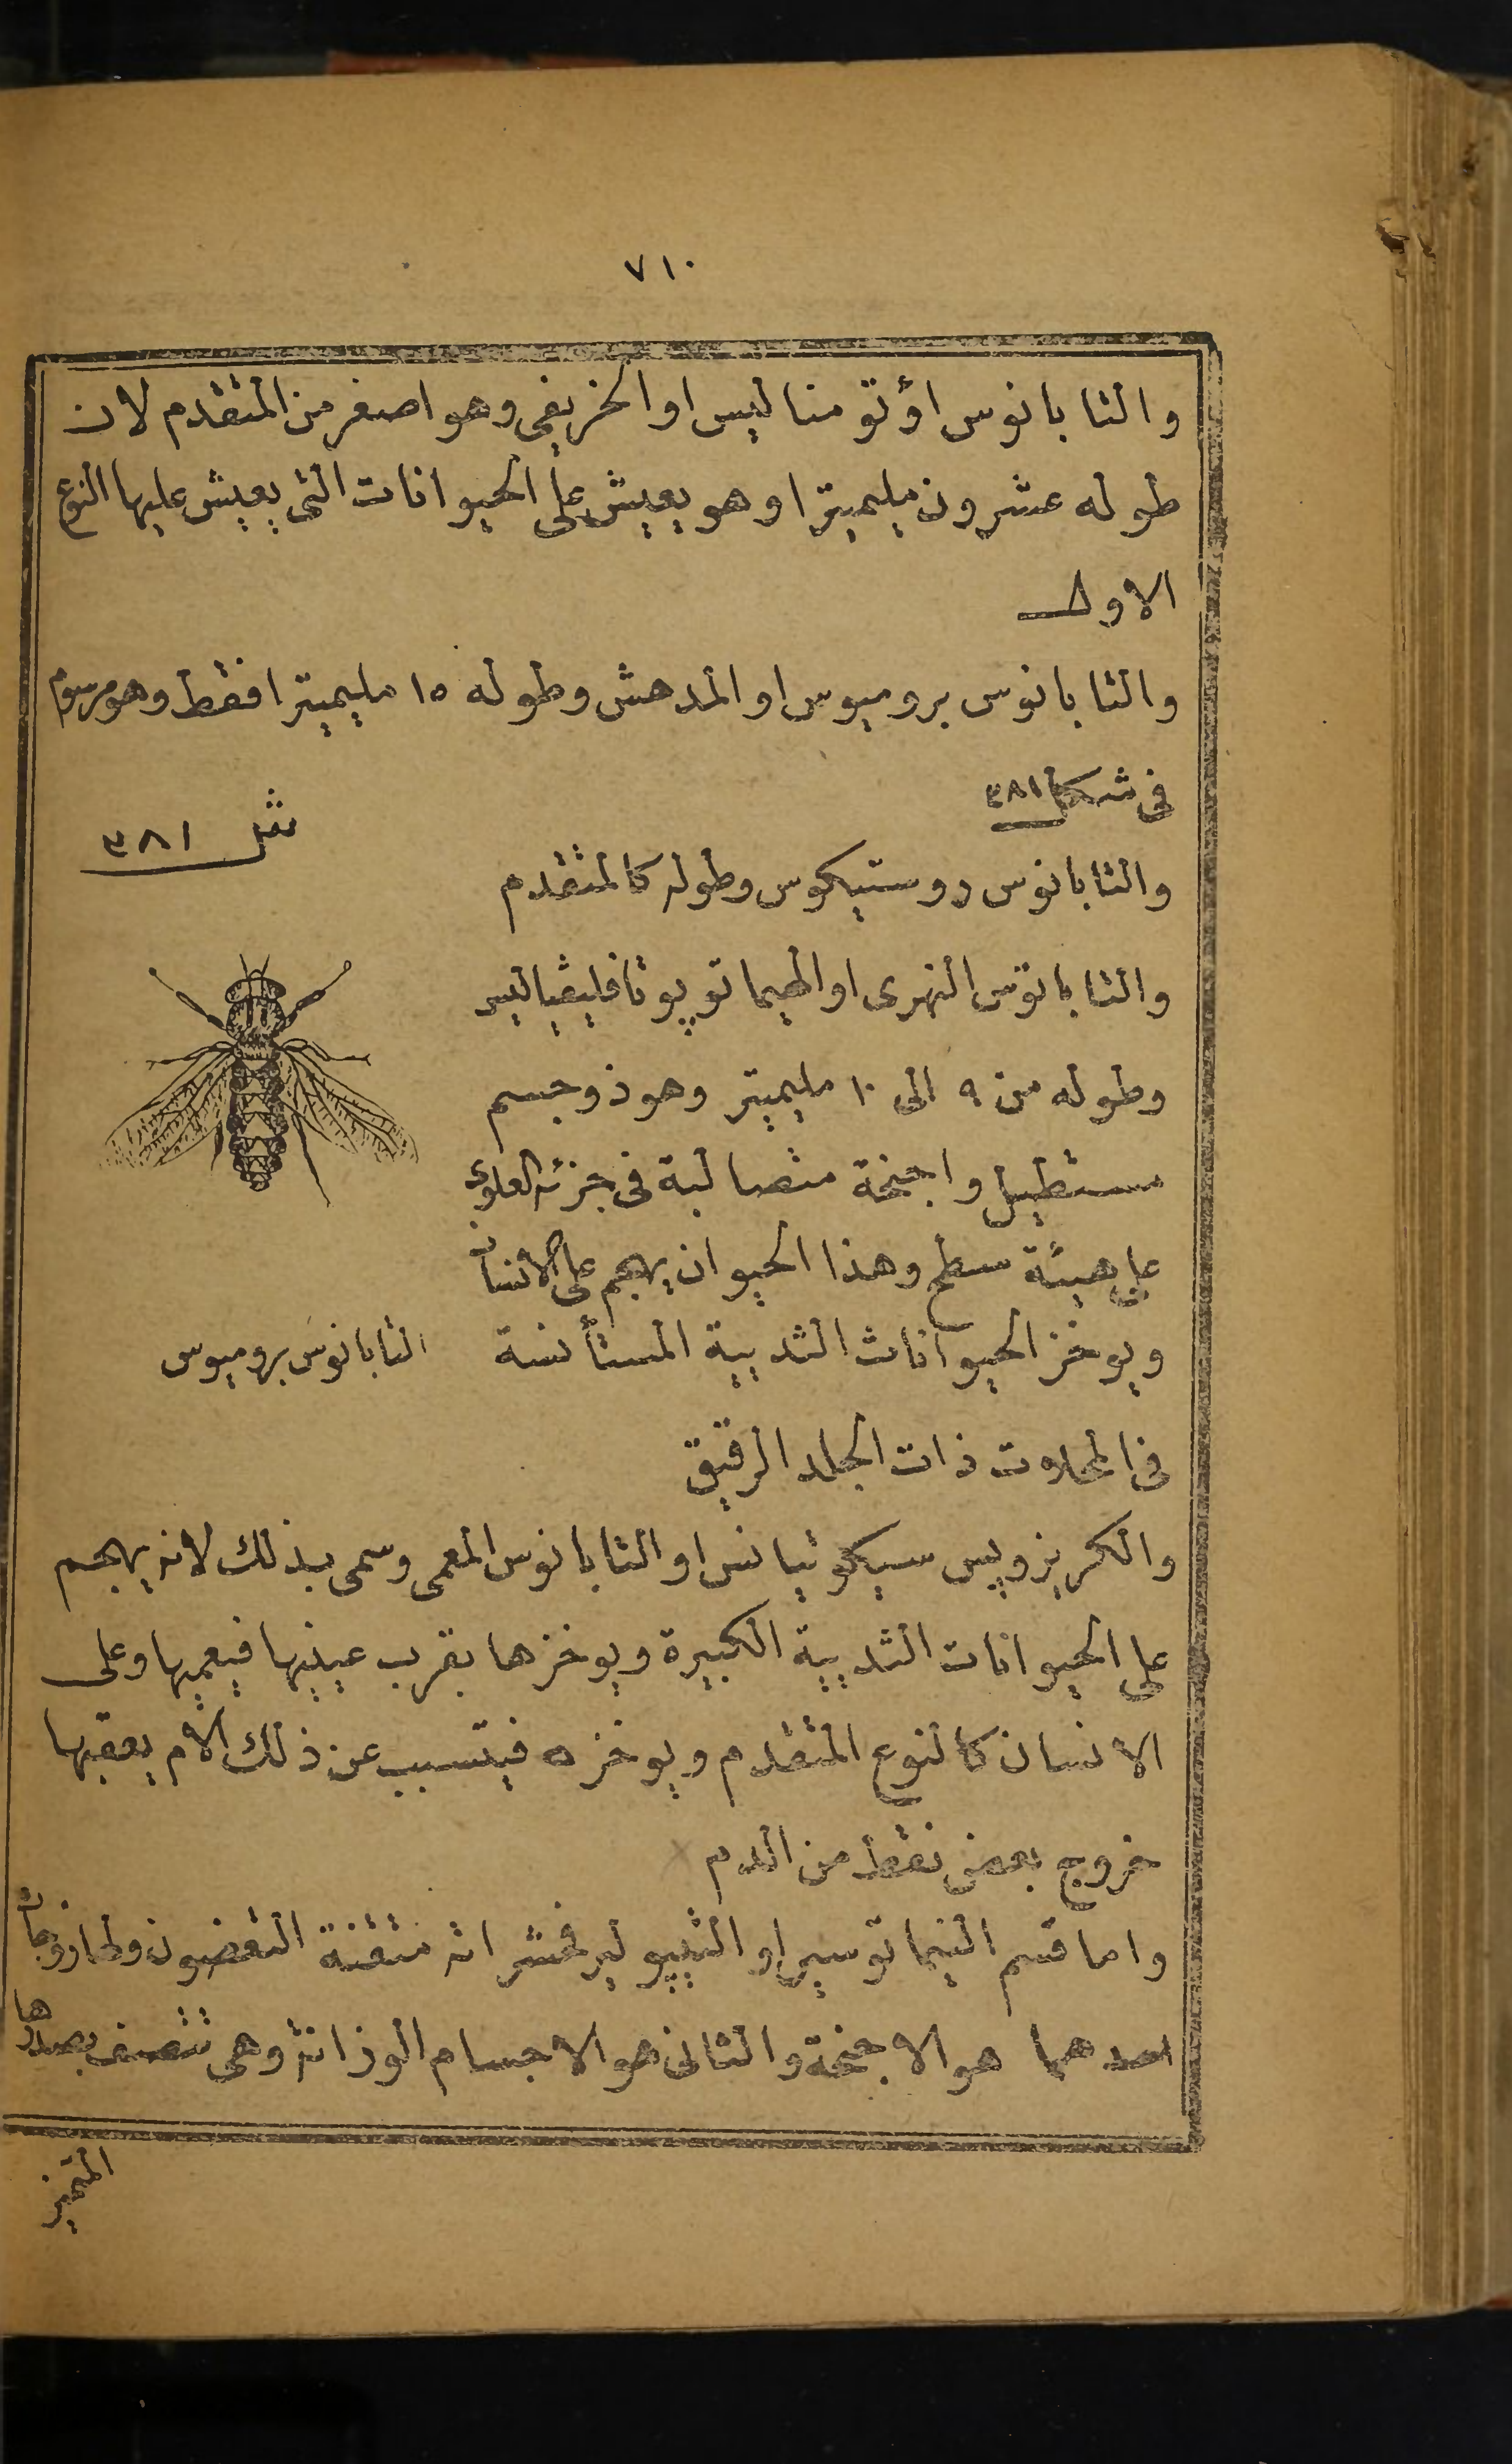 ٧١٠
والتابانوس اؤتومناليس او الخريفى وهو اصغر من المتقدم لان
طوله عشرون مليميترا وهو يعيش على الحيوانات التى يعيش عليها النوع
الاول
والتابانوس بروميوس او المدهش وطوله ١٥ مليميترا فقط وهو مرسوم
فى شكل ٣٨١
شكل ٣٨١
والتابانوس روستيكوس وطوله كالمتقدم
والتابانوس النهرى او الهيماتوپوتا فليڤياليس
وطوله من ٩ الى ١٠ مليميتر وهو ذو جسم
مستطيل واجنحة متصالبة فى جزئه العلوى
على هيئة سطح وهذا الحيوان يهجم على الانسان
ويوخز الحيوانات الثديية المستأنسة
التابانوس بروميوس
فى المحلات ذات الجلد الرقيق
والكريزوپس سيكوتيانس او التابانوس المعمى وسمى بذلك لانه يهجم
على الحيوانات الثديية الكبيرة ويوخزها بقرب عينيها فيعميها وعلى
الانسان كالنوع المتقدم ويوخزه فيتسبب عن ذلك الام يعقبها
خروج بعض نقط من الدم
واما قسم النيماتوسير او التيپولير فحشراته متقنة التعضون ولها زوجان
احدهما هو الاجنحة والثانى هو الاجسام الوزانة وهى تتصف بصدرها
المتميز